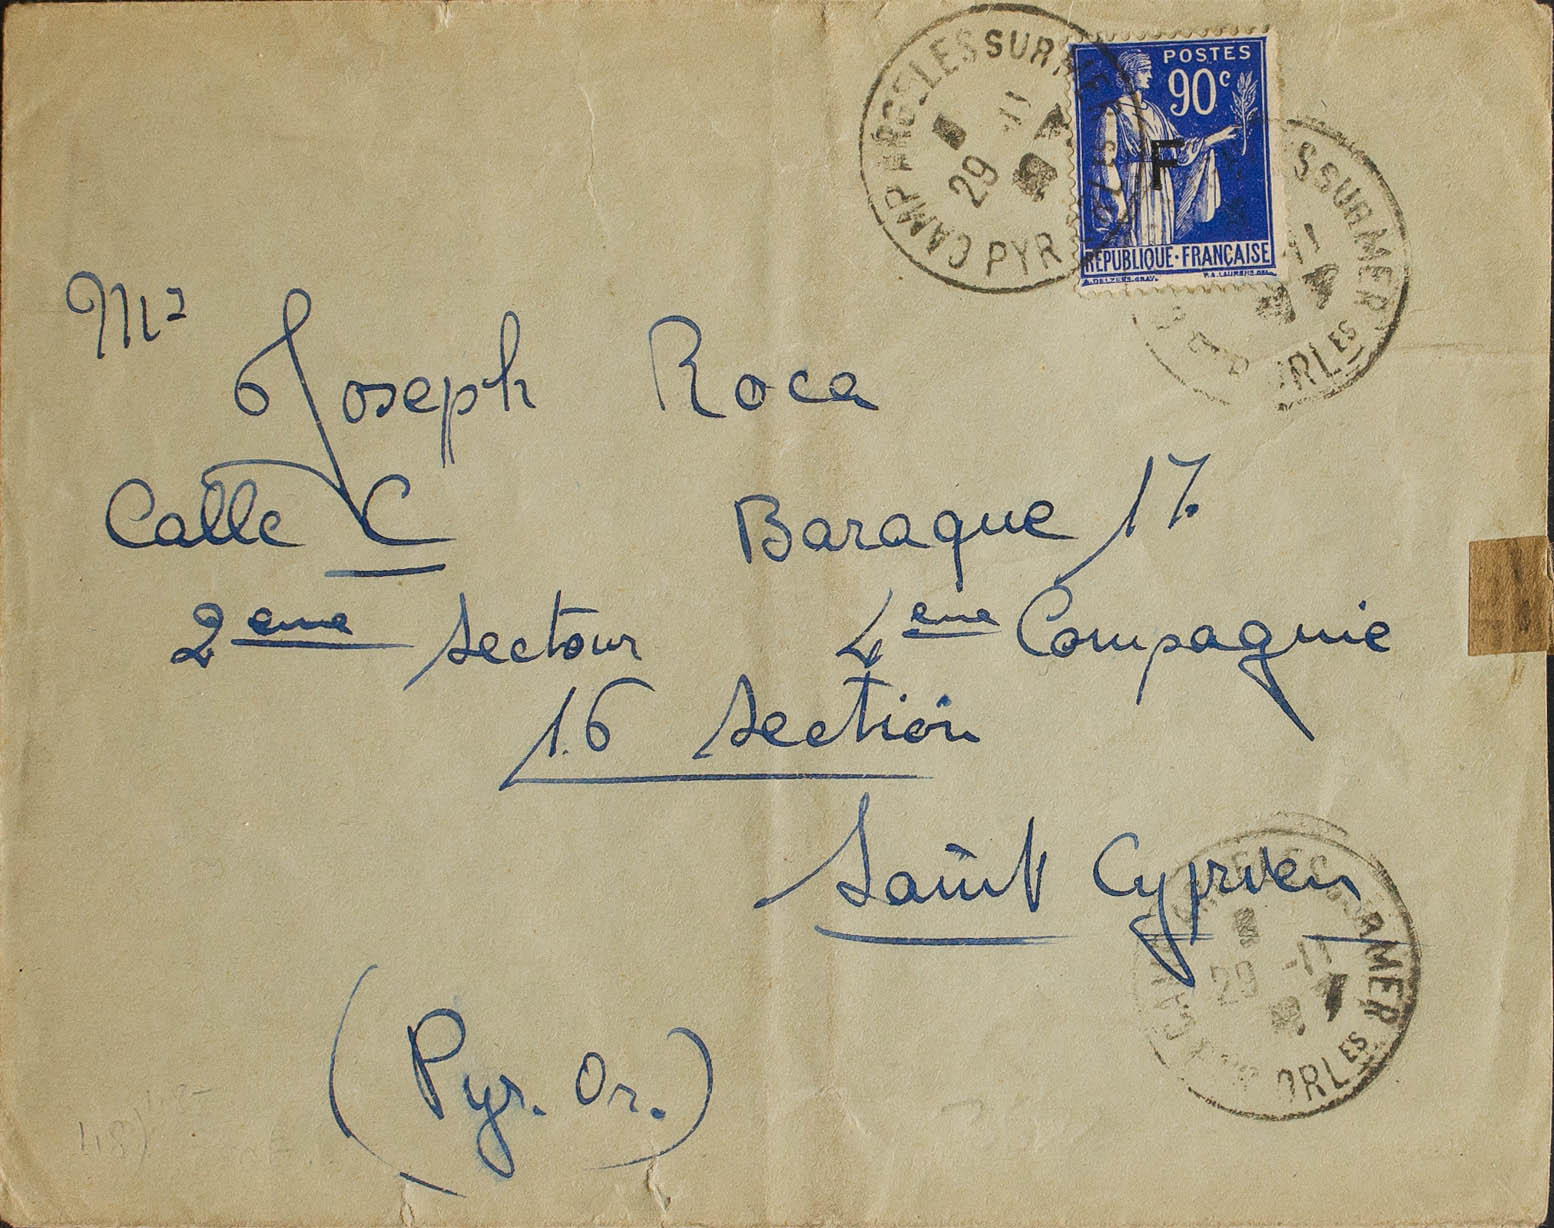 CAMP ARGELES SUR MER
29 -11
PYR
POSTES
90c
F
REPUBLIQUE·FRANÇAISE
SSURMER
-11
ORLES
Mr Joseph Roca
Calle C Baraque 17.
2eme secteur 4eme Compagnie
16 section
Saint Cyprien
(Pyr. Or.)
SUR MER
29 -11
ORLES